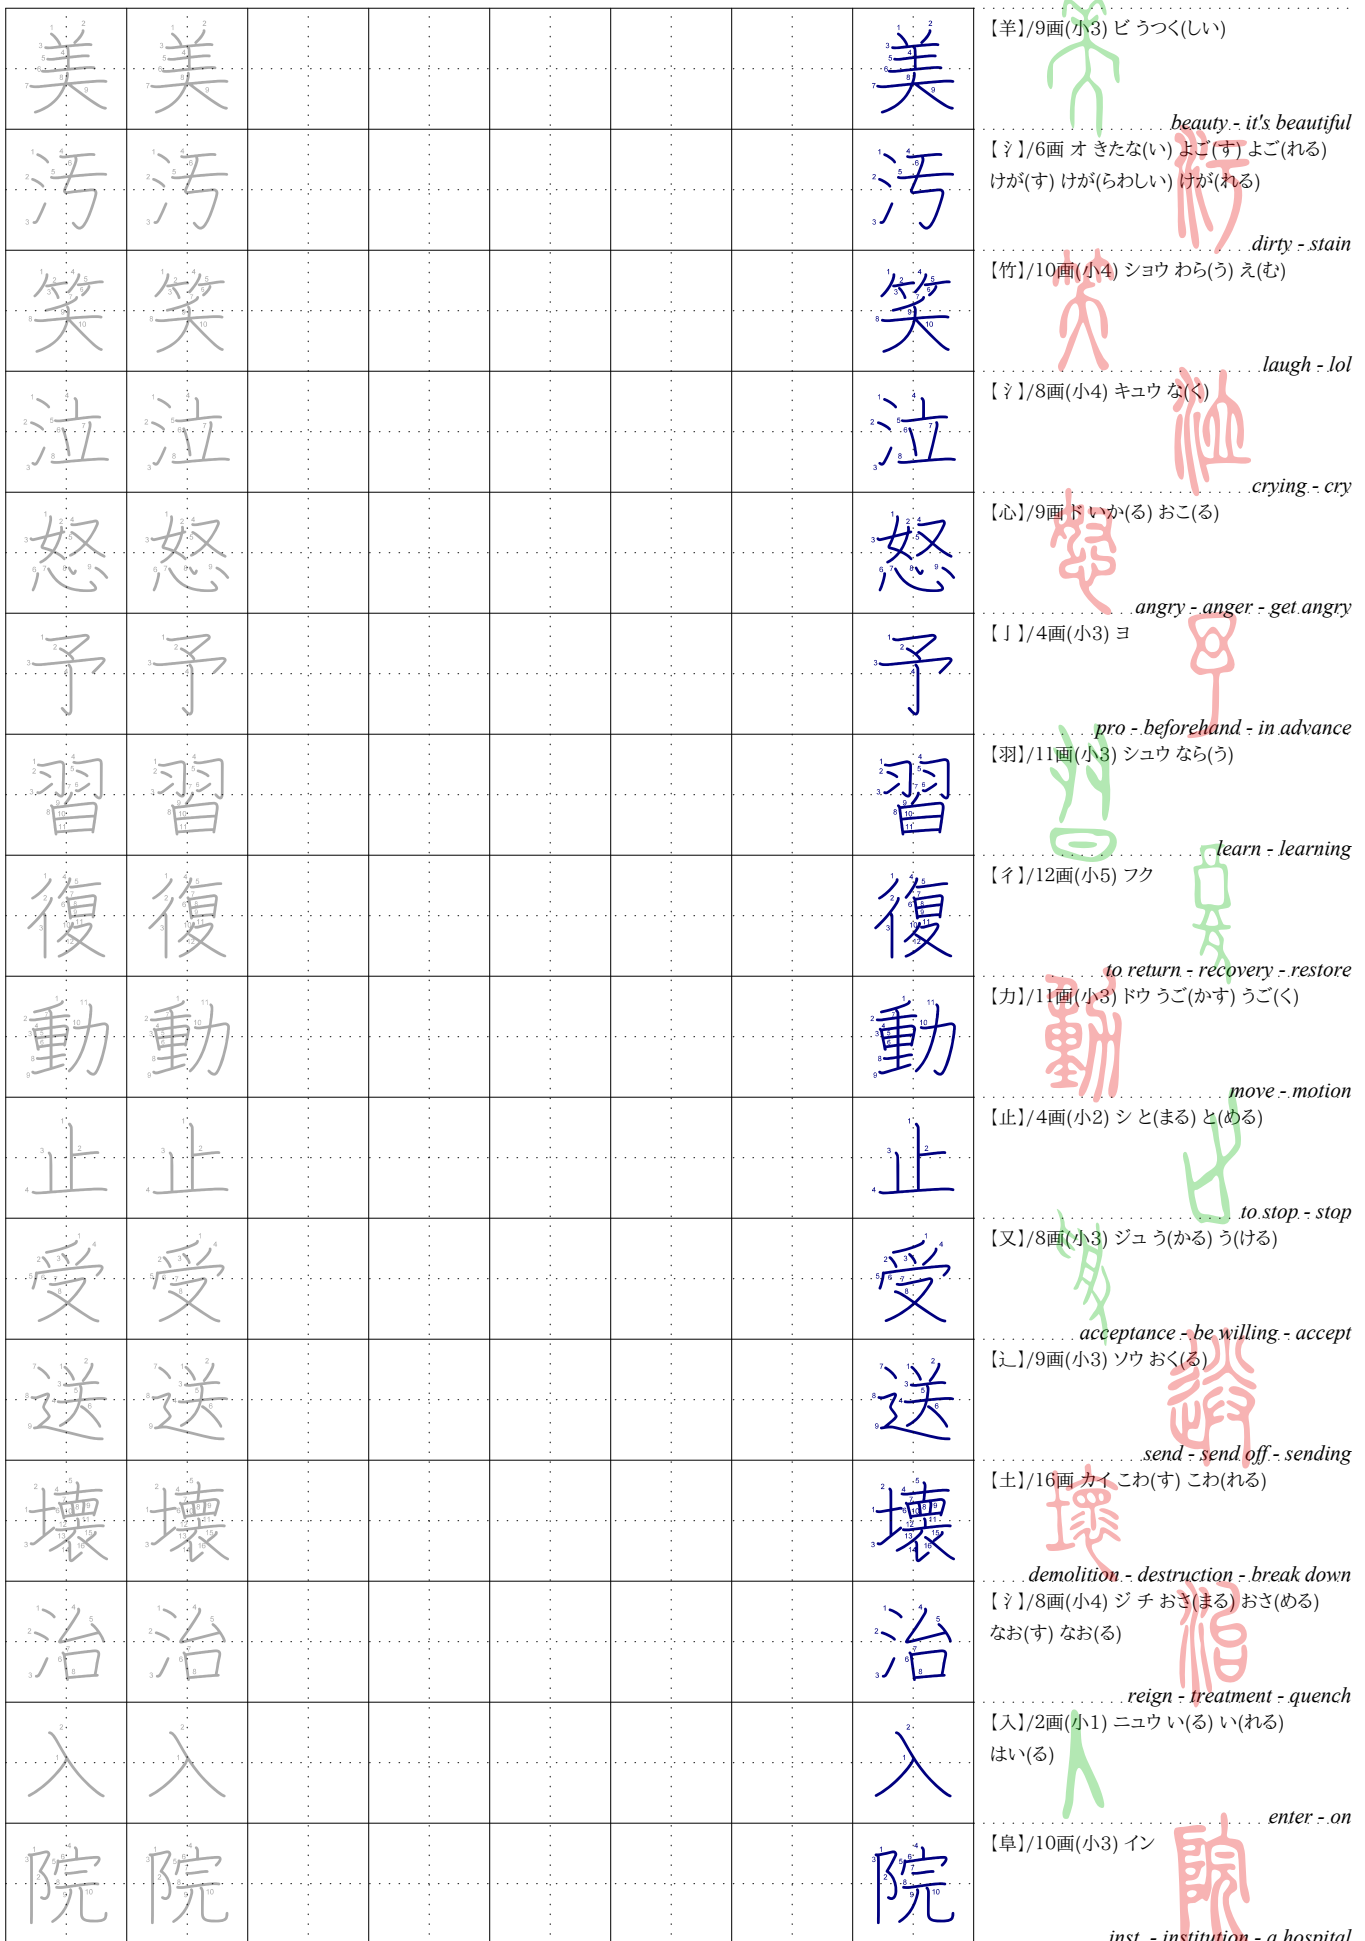 美 美 美 【羊】/9画(小3) ビ うつく(しい)
beauty - it's beautiful
汚 汚 汚 【氵】/6画 オ きたな(い) よご(す) よご(れる)
けが(す) けが(らわしい) けが(れる)
dirty - stain
笑 笑 笑 【竹】/10画(小4) ショウ わら(う) え(む)
laugh - lol
泣 泣 泣 【氵】/8画(小4) キュウ な(く)
crying - cry
怒 怒 怒 【心】/9画 ド いか(る) おこ(る)
angry - anger - get angry
予 予 予 【亅】/4画(小3) ヨ
pro - beforehand - in advance
習 習 習 【羽】/11画(小3) シュウ なら(う)
learn - learning
復 復 復 【彳】/12画(小5) フク
to return - recovery - restore
動 動 動 【力】/11画(小3) ドウ うご(かす) うご(く)
move - motion
止 止 止 【止】/4画(小2) シ と(まる) と(める)
to stop - stop
受 受 受 【又】/8画(小3) ジュ う(かる) う(ける)
acceptance - be willing - accept
送 送 送 【辶】/9画(小3) ソウ おく(る)
send - send off - sending
壊 壊 壊 【土】/16画 カイ こわ(す) こわ(れる)
demolition - destruction - break down
治 治 治 【氵】/8画(小4) ジ チ おさ(まる) おさ(める)
なお(す) なお(る)
reign - treatment - quench
入 入 入 【入】/2画(小1) ニュウ い(る) い(れる)
はい(る)
enter - on
院 院 院 【阜】/10画(小3) イン
inst. - institution - a hospital